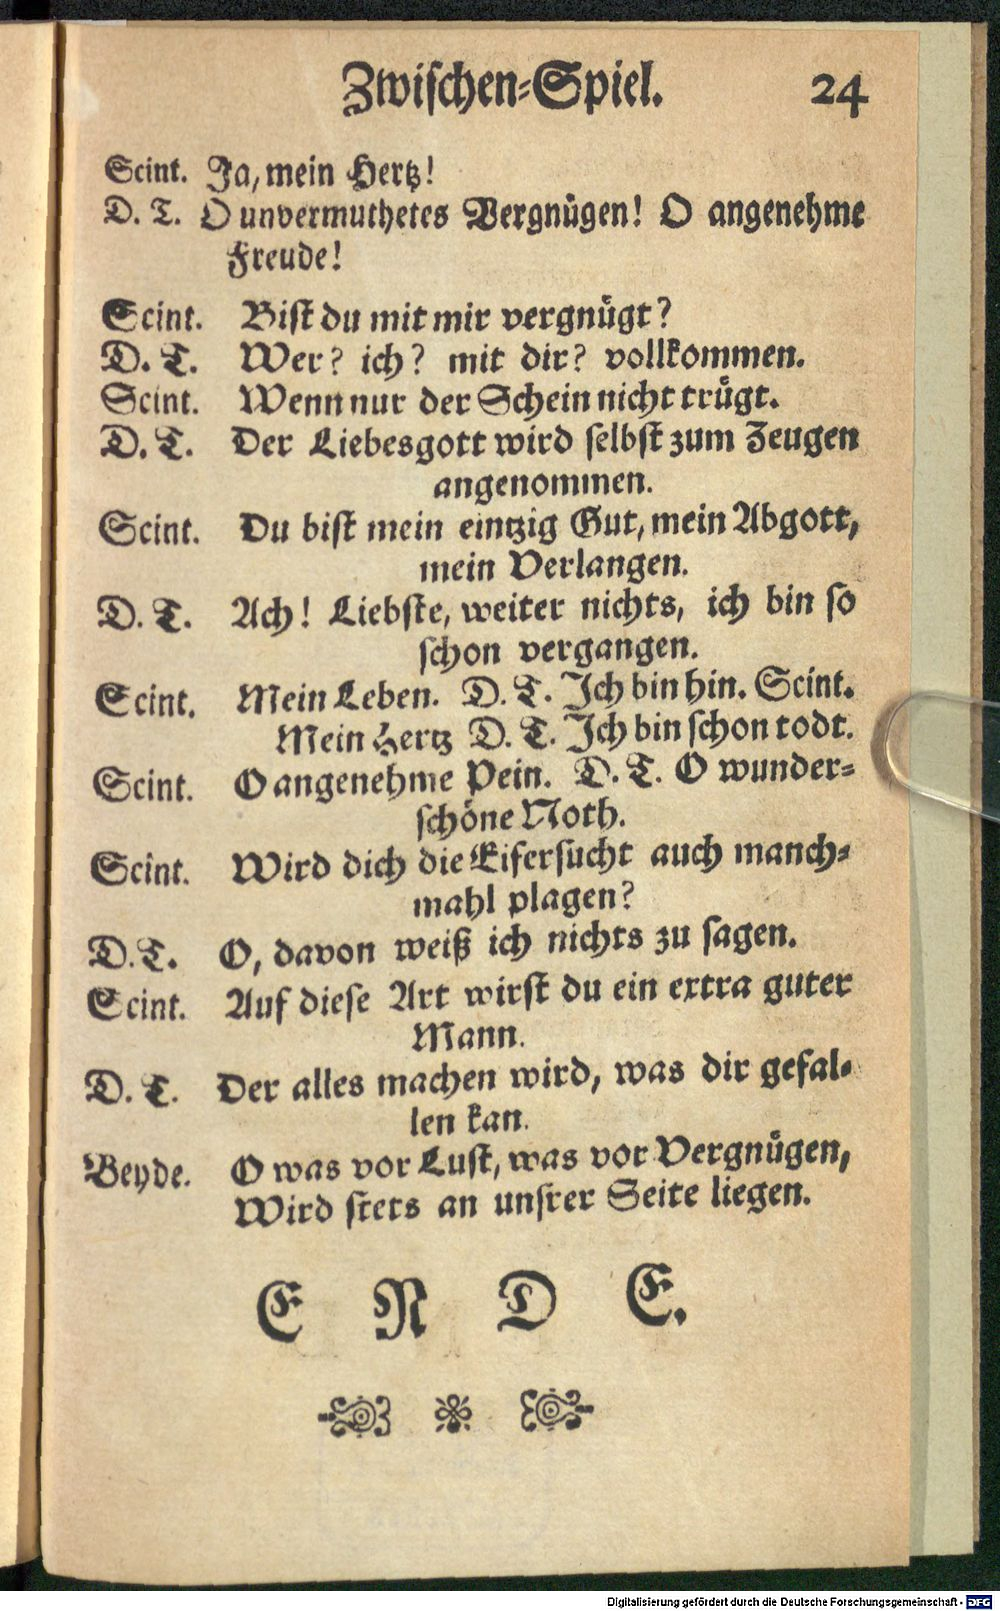 Zwiſchen-Spiel. 24
Scint. Ja, mein Hertz!
D. T. O unvermuthetes Vergnügen! O angenehme
Freude!
Scint. Biſt du mit mir vergnügt?
D. T. Wer? ich? mit dir? vollkommen.
Scint. Wenn nur der Schein nicht trügt.
D. T. Der Liebesgott wird ſelbſt zum Zeugen
angenommen.
Scint. Du biſt mein eintzig Gut, mein Abgott,
mein Verlangen.
D. T. Ach! Liebſte, weiter nichts, ich bin ſo
ſchon vergangen.
Scint. Mein Leben. D. T. Ich bin hin. Scint.
Mein Hertz D. T. Ich bin ſchon todt.
Scint. O angenehme Pein. D. T. O wunder-
ſchöne Noth.
Scint. Wird dich die Eiferſucht auch manch-
mahl plagen?
D. T. O, davon weiß ich nichts zu ſagen.
Scint. Auf dieſe Art wirſt du ein extra guter
Mann.
D. T. Der alles machen wird, was dir gefal-
len kan.
Beyde. O was vor Luſt, was vor Vergnügen,
Wird ſtets an unſrer Seite liegen.
E N D E.
Digitalisierung gefördert durch die Deutsche Forschungsgemeinschaft - DFG